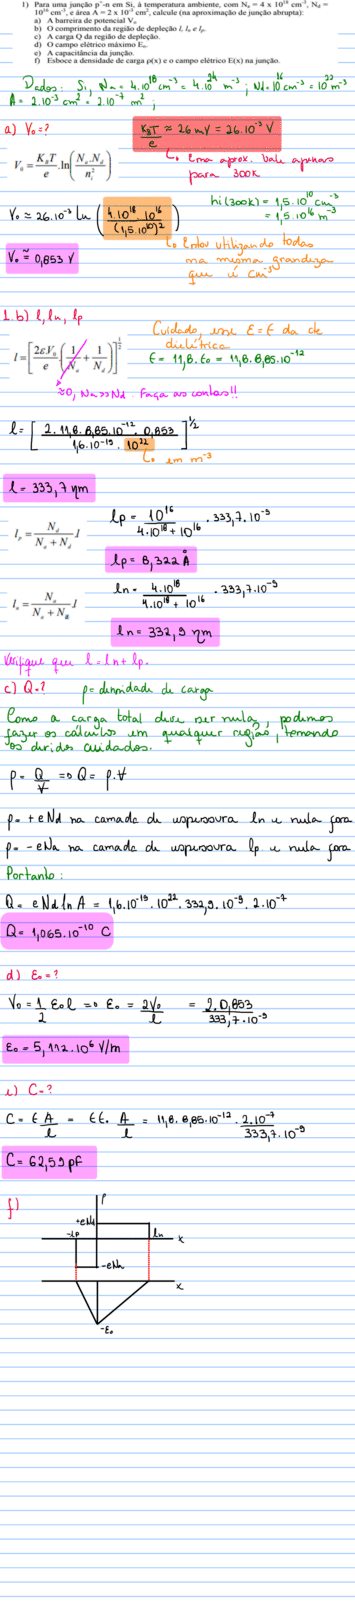 1) Para uma junção p⁺-n em Si, à temperatura ambiente, com Nₐ = 4 x 10¹⁸ cm⁻³, N_d =
10¹⁶ cm⁻³, e área A = 2 x 10⁻³ cm², calcule (na aproximação de junção abrupta):
a) A barreira de potencial Vₒ
b) O comprimento da região de depleção l, lₙ e lₚ.
c) A carga Q da região de depleção.
d) O campo elétrico máximo Eₒ.
e) A capacitância da junção.
f) Esboce a densidade de carga ρ(x) e o campo elétrico E(x) na junção.
Dados: Si, Na = 4.10¹⁸ cm⁻³ = 4.10²⁴ m⁻³; Nd = 10¹⁶ cm⁻³ = 10²² m⁻³
A = 2.10⁻³ cm² = 2.10⁻⁷ m²;
a) V₀ = ?
KBT/e ≈ 26 mV = 26.10⁻³ V
Uma aprox. Vale apenas
para 300K
V₀ = K_BT/e . ln(Nₐ.N_d/nᵢ²)
ni(300K) = 1,5.10¹⁰ cm⁻³
= 1,5.10¹⁶ m⁻³
V₀ ≈ 26.10⁻³ ln (4.10¹⁸.10¹⁶/(1,5.10¹⁰)²)
utilizando todas
na mesma grandeza
que é cm⁻³
V₀ ≈ 0,853 V
1.b) l, ln, lp
Cuidado, esse ε = ε da de
dielétrica
l = [2εV₀/e (1/Nₐ + 1/N_d)]^½
ε = 11,8.ε₀ = 11,8.8,85.10⁻¹²
≈0, Na>>Nd. Faça as contas!!
l = [2.11,8.8,85.10⁻¹².0,853/1,6.10⁻¹⁹.10²²]^½
em m⁻³
l = 333,7 ηm
lₚ = N_d/(Nₐ + N_d) l
lp = 10¹⁶/(4.10¹⁸ + 10¹⁶) . 333,7.10⁻⁹
lp = 8,322 Å
lₙ = Nₐ/(Nₐ + N_d) l
ln = 4.10¹⁸/(4.10¹⁸ + 10¹⁶) . 333,7.10⁻⁹
ln = 332,9 ηm
Verifique que l = ln + lp.
c) Q = ? ρ = densidade de carga
Como a carga total deve ser nula, podemos
fazer os cálculos em qualquer região, tomando
os devidos cuidados.
ρ = Q/V => Q = ρ.V
ρ = +eNd na camada de espessura ln e nula fora
ρ = -eNa na camada de espessura lp e nula fora
Portanto:
Q = eNd ln A = 1,6.10⁻¹⁹.10²².332,9.10⁻⁹.2.10⁻⁷
Q = 1,065.10⁻¹⁰ C
d) ε₀ = ?
V₀ = 1/2 ε₀l => ε₀ = 2V₀/l = 2.0,853/333,7.10⁻⁹
ε₀ = 5,112.10⁶ V/m
e) C = ?
C = ε A/l = εε₀ A/l = 11,8.8,85.10⁻¹².2.10⁻⁷/333,7.10⁻⁹
C = 62,59 pF
f)
ρ
+eNd
-lp
ln
x
-eNa
x
-ε₀